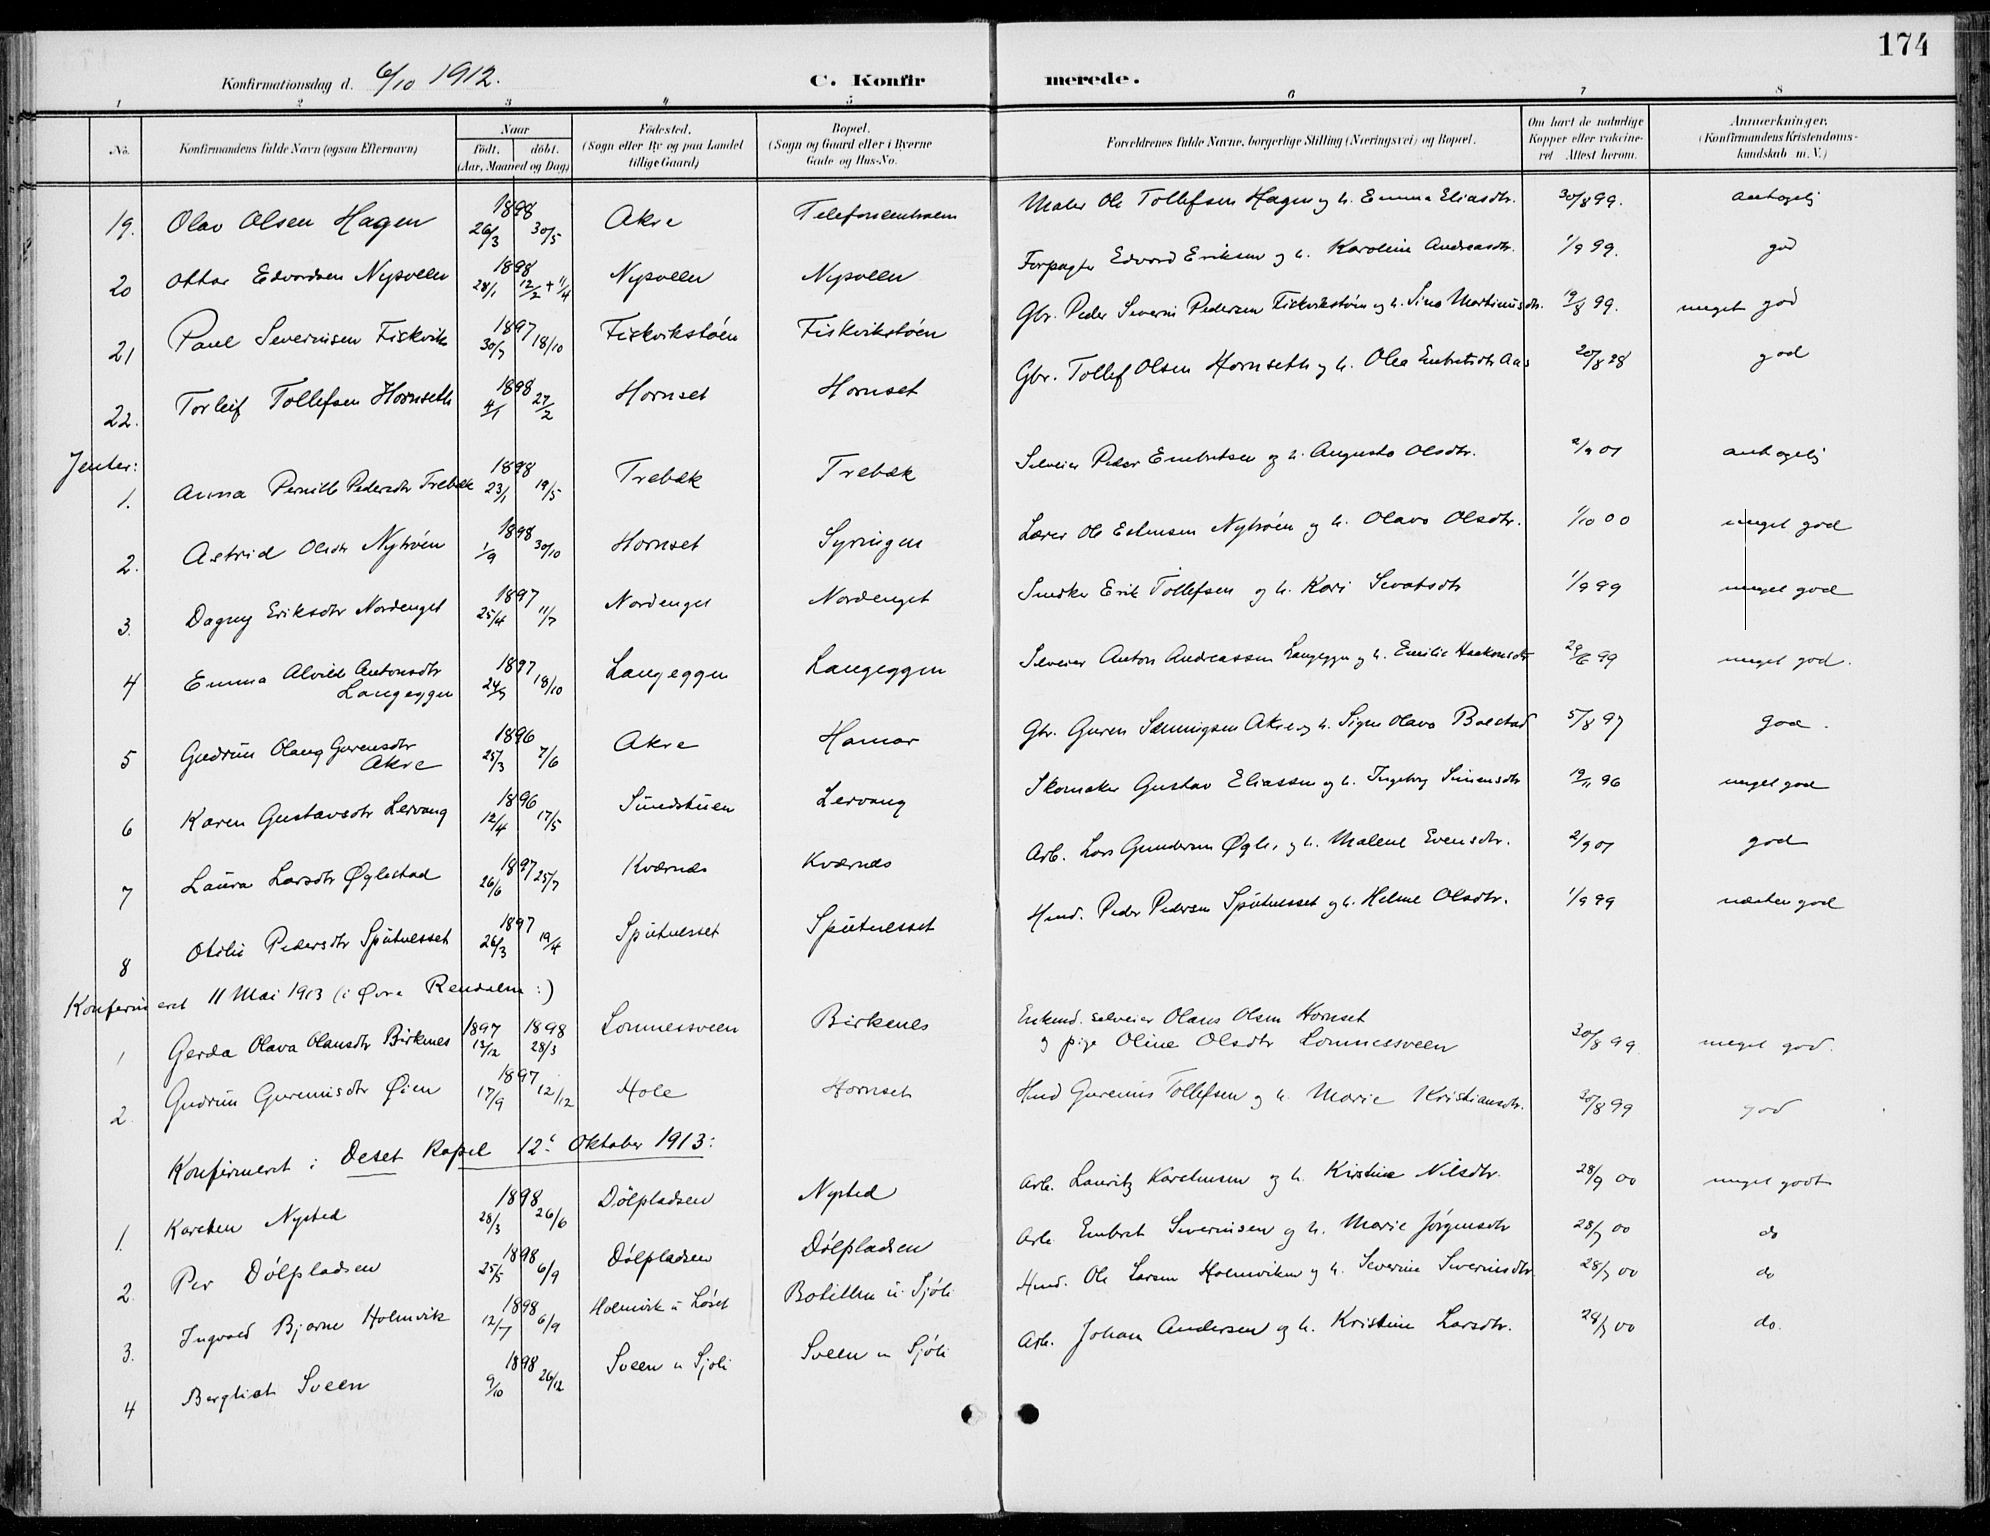 174
Konfirmationsdag d. 6/10 1912. C. Konfirmerede.
1 2 3 4 5 6 7 8
No. Konfirmandens fulde Navn (ogsaa Efternavn) Naar födt. döbt. (Aar, Maaned og Dag) Födested. (Sogn eller By og paa Landet tillige Gaard) Bopæl. (Sogn og Gaard eller i Byerne Gade og Hus-No. Forældrenes fulde Navne, borgerlige Stilling (Næringsvei) og Bopæl. Om havt de naturlige Kopper eller vaccineret Attest herom. Anmærkninger. (Konfirmandens Kristendomskundskab m. V.)
19. Olav Olsen Hagen 1898 26/3 30/5 Akre Telefoncentralen Maler Ole Tollefsen Hagen og h. Emma Eliasdtr. 30/8 99. antagelig
20 Ottar Edvardsen Nysvollen 1898 28/1 12/2 + 11/4 Nysvollen Nysvollen Forpagter Edvard Eriksen og h. Karoline Andreasdtr. 1/9 99. god
21 Paul Severinsen Fiskvik 1897 30/7 18/10 Fiskvikstöen Fiskvikstöen Gbr. Peder Severin Pedersen Fiskvikstöen og h. Sina Martinusdtr. 19/8 99. meget god
22. Torleif Tollefsen Hornseth 1898 4/1 27/2 Hornset Hornset Gbr. Tollef Olsen Hornseth og h. Olea Embretsdtr Aas 20/8 28 god
Jenter:
1. Anna Pernille Pedersdtr Trebæk 1898 23/1 19/5 Trebæk Trebæk Selveier Peder Embretsen og h. Augusta Olsdtr. 2/9 01 antagelig
2. Astrid Olsdtr Nytröen 1898 1/9 30/10 Hornset Syringen Lærer Ole Estensen Nytröen og h. Olava Olsdtr. 1/10 00 meget god
3. Dagny Eriksdtr Nordenget 1897 25/4 11/7 Nordenget Nordenget Snedker Erik Tollefsen og h. Kari Sivatsdtr 1/9 99 meget god
4 Emma Alvild Antonsdtr Langeggen 1897 24/7 18/10 Langeggen Langeggen Selveier Anton Andreassen Langeggen og h. Emilie Haakonsdtr 29/6 99 meget god.
5 Gudrun Olaug Gurensdtr Akre 1896 25/3 7/6 Akre Hamar Gbr. Guren Sæmingsen Akre og h. Signe Olava Bolstad 5/8 97 god.
6 Karen Gustavsdtr Lervang 1896 12/4 17/5 Sundstuen Lervang Skomaker Gustav Eliassen og h. Ingeborg Simensdtr 19/11 96 meget god
7 Laura Larsdtr Øglestad 1897 26/6 25/7 Kværnes Kværnes Arb. Lars Gundersen Øgle. og h. Malene Evensdtr. 2/9 01 god
8 Otilie Pedersdtr Sputnesset 1897 26/3 19/4 Sputnesset Sputnesset Hmd. Peder Pedersen Sputnesset og h. Helene Olsdtr. 1/9 99 næsten god
Konfirmeret 11 Mai 1913 (i Øvre Rendalen :)
1 Gerda Olava Olausdtr Birkenes 1897 12/12 1898 28/3 Lomnessveen Birkenes Enkmd. selveier Olaus Olsen Hornset
og pige Oline Olsdtr Lomnessveen 30/8 99. meget god.
2. Gudrun Gureniusdtr Øien 1897 17/9 12/12 Hole Hornset Hmd Gurenius Tollefsen og h. Marie Kristiansdtr. 30/8 99 god
Konfirmeret i Deset Kapel 12te Oktober 1913:
1. Karsten Nysted 1898 28/3 26/6 Dölpladsen Nysted Arb. Lauritz Karelinsen og h. Kirstine Nilsdtr. 28/9 00 meget godt
2. Per Dölpladsen 1898 25/5 6/9 Dölpladsen Dölpladsen Arb. Embret Severinsen og h. Marie Jörgensdtr 28/9 00 do
3. Ingvald Bjarne Holmvik 1898 12/7 6/9 Holmvik u Löset Botillen u. Sjöli Hmd. Ole Larsen Holmviken og h. Severine Severinsdtr 28/9 00 do
4 Bergliot Sveen 1898 9/10 26/12 Sveen u Sjöli Sveen u Sjöli Arb. Johan Andersen og h. Kristine Larsdtr. 28/9 00 do.